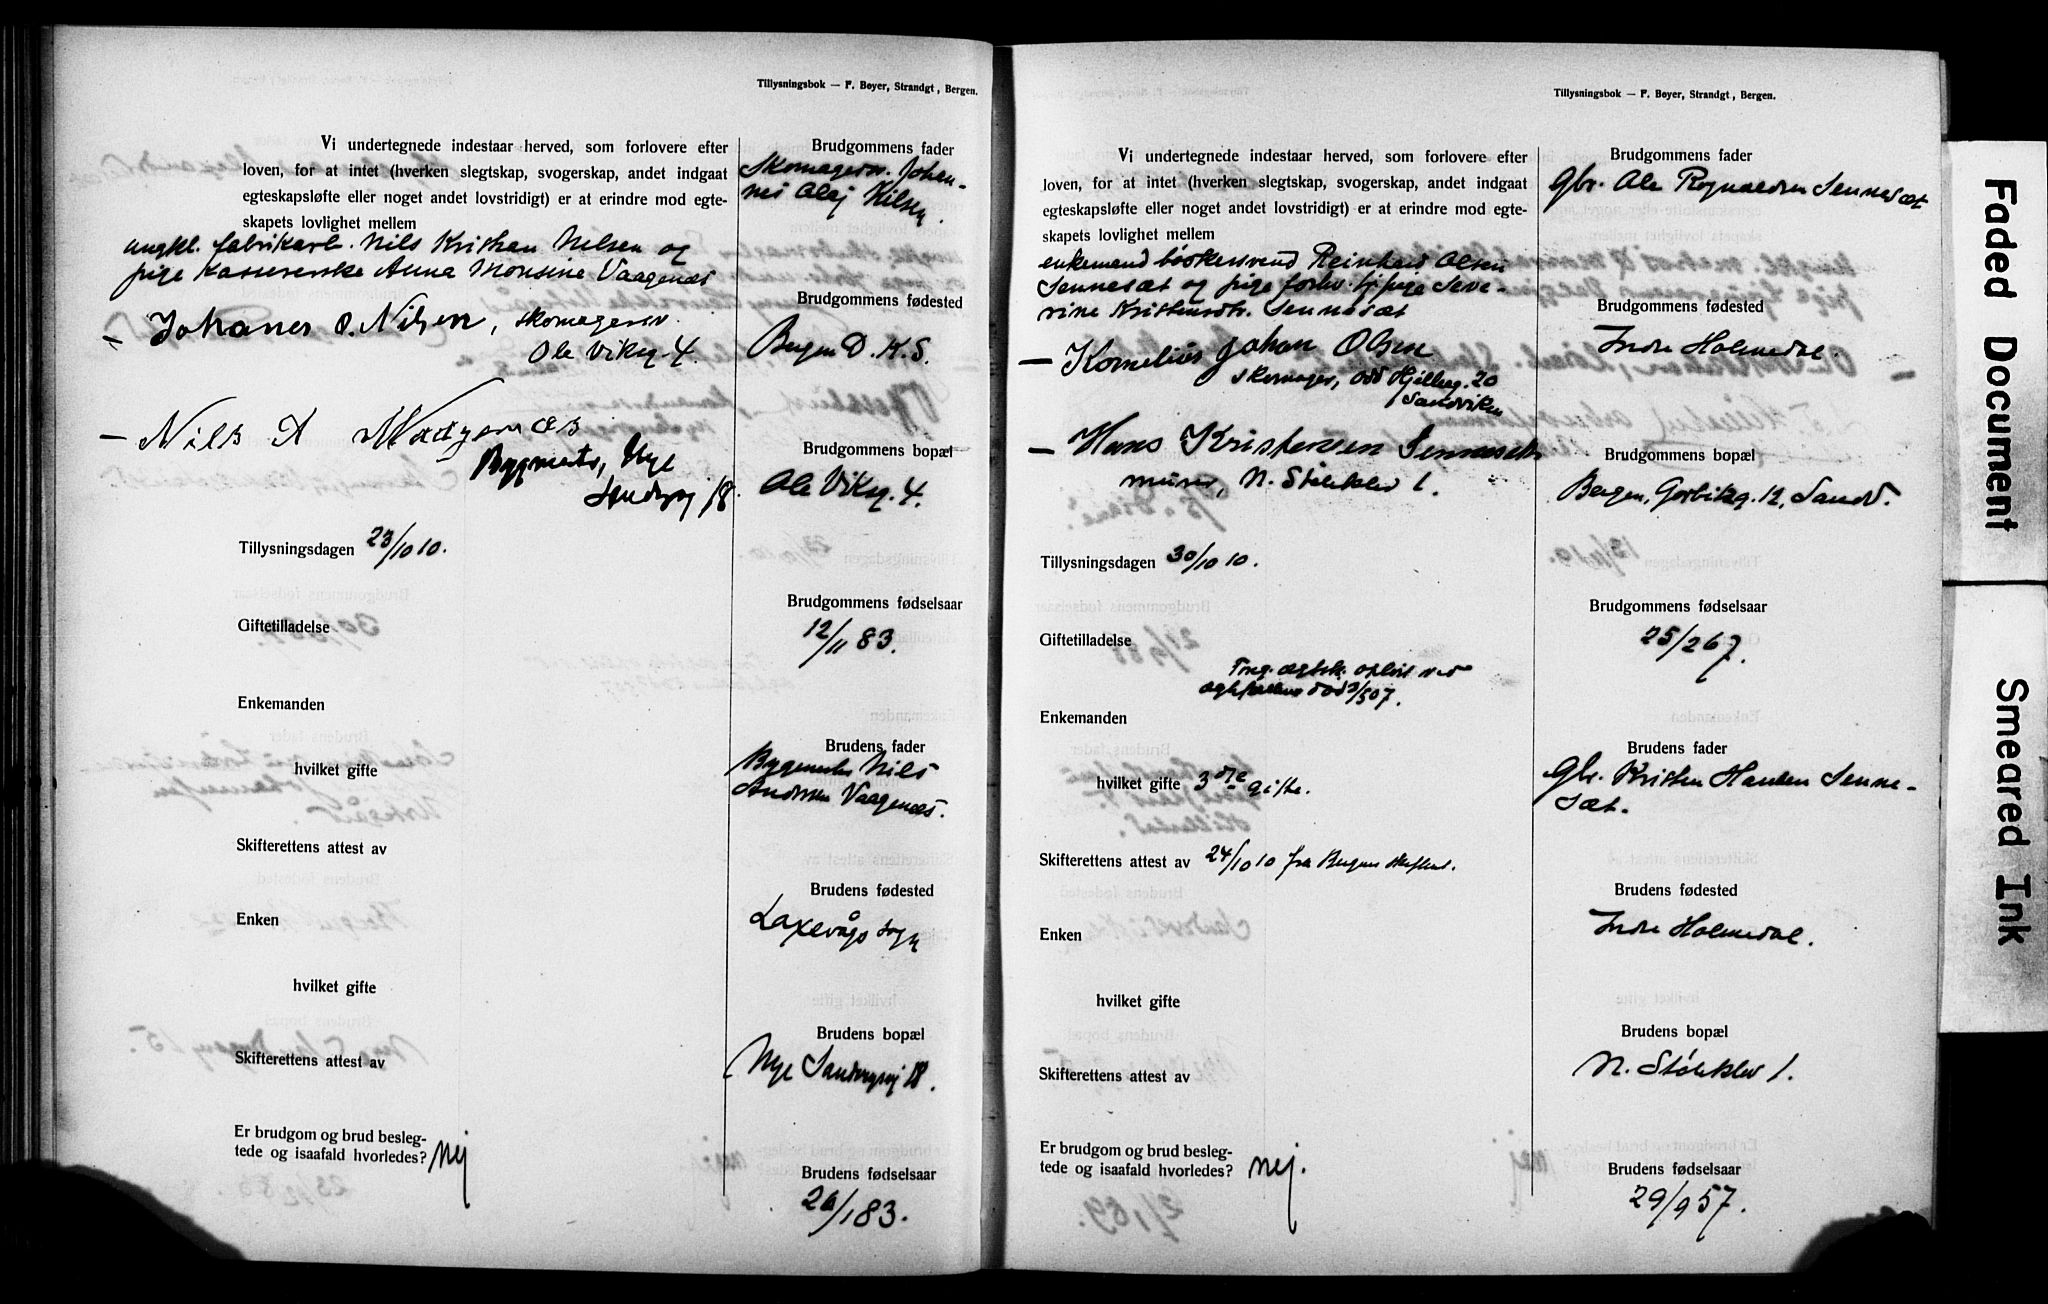 Tillysningsbok — F. Beyer, Strandgt, Bergen.
Vi undertegnede indestaar herved, som forlovere efter
loven, for at intet (hverken slegtskap, svogerskap, andet indgaat
egteskapsløfte eller noget andet lovstridigt) er at erindre mod egte-
skapets lovlighet mellem
ungkl. fabrikarb. Nils Kristian Nilsen og
pige kassererske Anna Monsine Vaagenæs
— Johanes O. Nilsen, skomagersv.
Ole Viksg. 4.
— Nils A Waagenæs
Bygmester, Nye
Sandvigsvej 18.
Tillysningsdagen 23/10 10.
Giftetilladelse
Enkemanden
hvilket gifte
Skifterettens attest av
Enken
hvilket gifte
Skifterettens attest av
Er brudgom og brud besleg-
tede og isaafald hvorledes? Nej
Brudgommens fader
Skomagersv. Johan-
nes Olaj Nilsen.
Brudgommens fødested
Bergen D. K. S.
Brudgommens bopæl
Ole Viksg. 4.
Brudgommens fødselsaar
12/11 83.
Brudens fader
Bygmester Nils
Andersen Vaagenæs.
Brudens fødested
Laxevågs sogn
Brudens bopæl
Nye Sandvigsvej 18.
Brudens fødselsaar
26/1 83.
Tillysningsbok — F. Beyer, Strandgt, Bergen.
Vi undertegnede indestaar herved, som forlovere efter
loven, for at intet (hverken slegtskap, svogerskap, andet indgaat
egteskapsløfte eller noget andet lovstridigt) er at erindre mod egte-
skapets lovlighet mellem
enkemand bøkkersvend Reinhard Olsen
Sennesæt og pige forhv. tj. pige Seve-
rine Kristensdtr. Sennesæt
— Kornelius Johan Olsen
skomager, Odd Hjelteg. 20
Sandviken
— Hans Kristensen Sennesæt
murer, N. Støleklev 1.
Tillysningsdagen 30/10 10.
Giftetilladelse
egtesk. opløst ved
død 3/5 07.
Enkemanden
hvilket gifte 3die gifte.
Skifterettens attest av 24/10 10 fra Bergens skifteret.
Enken
hvilket gifte
Skifterettens attest av
Er brudgom og brud besleg-
tede og isaafald hvorledes? Nej.
Brudgommens fader
Gbr. Ole Rognaldsen Sennesæt
Brudgommens fødested
Indre Holmedal.
Brudgommens bopæl
Bergen, 12, Sandv.
Brudgommens fødselsaar
25/2 67.
Brudens fader
Gbr. Kristen Hansen Senne-
sæt.
Brudens fødested
Indre Holmedal.
Brudens bopæl
N. Støleklev 1.
Brudens fødselsaar
29/9 57.
Faded Document
Smeared Ink